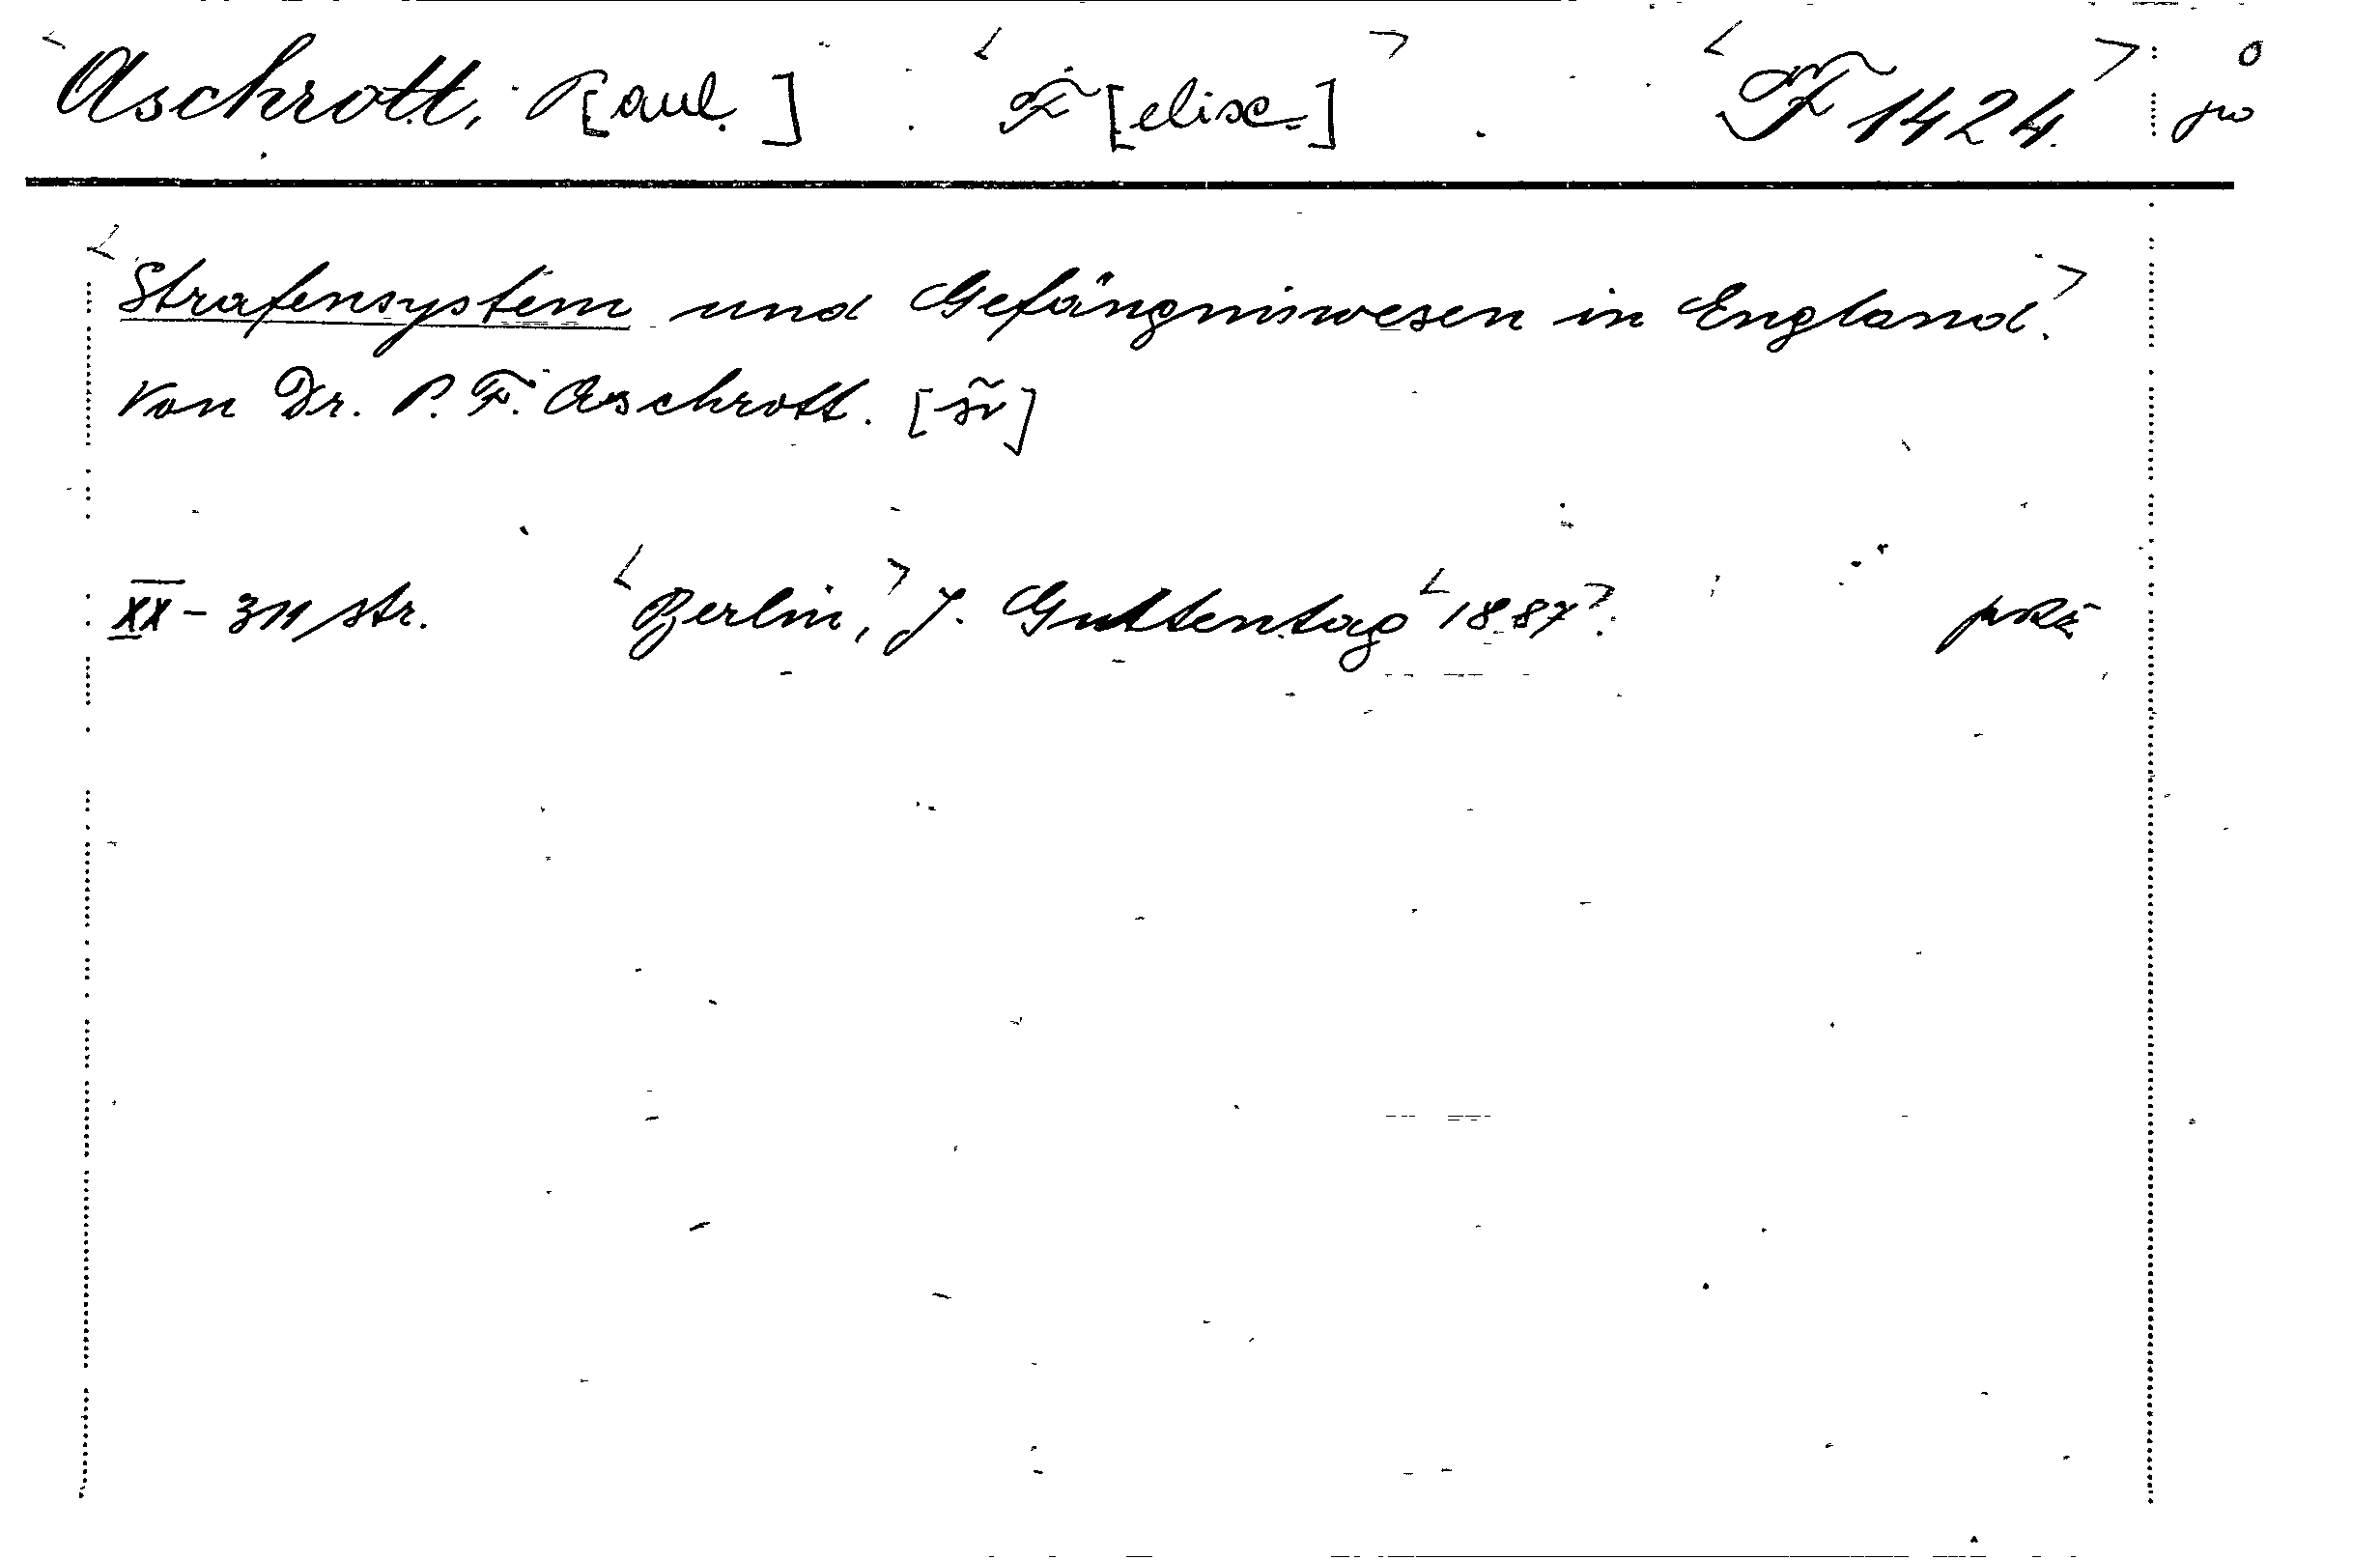 Aschrott, P[aul.] F[elix.] F 1424.
Strafensystem und Gefängniswesen in England.
Von Dr. P. F. Aschrott.
XX - 311 str. Berlin, J. Guttentag 1887.